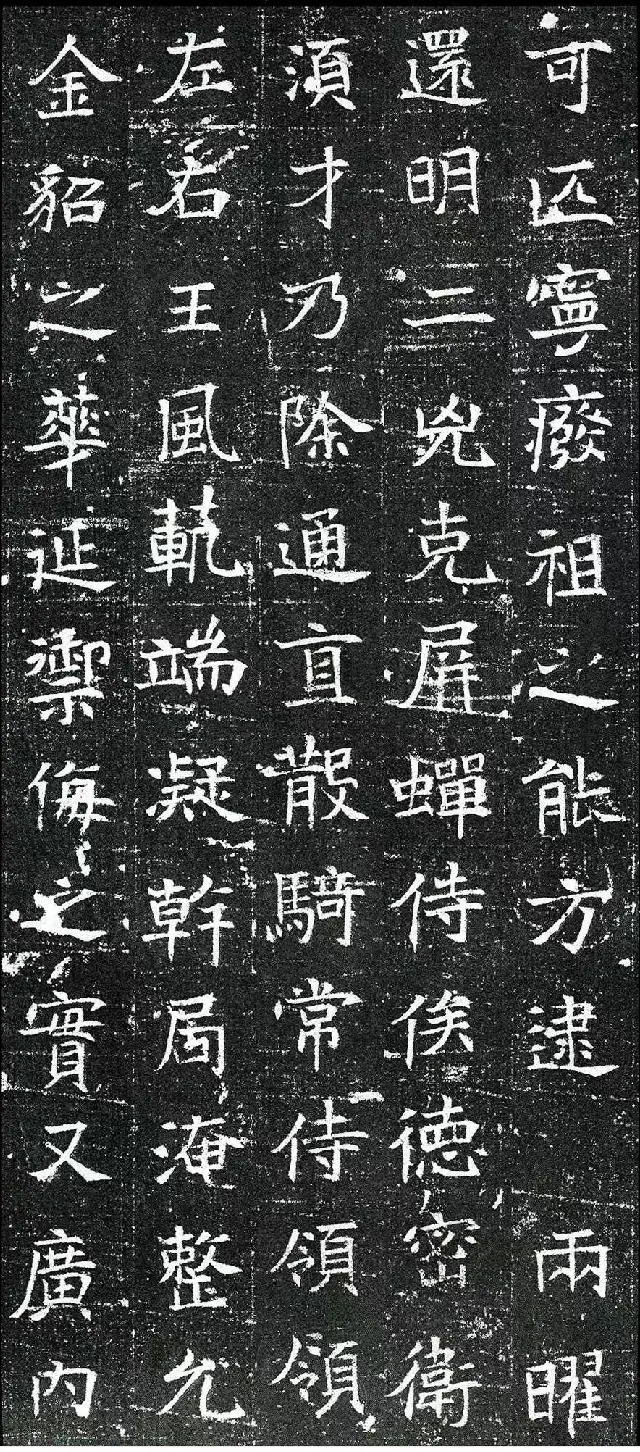 可匹寧癈祖之能方逮兩曜
還明二兇克屏蟬侍俟德密衛
須才乃除通直散騎常侍領領
左右王風軌端凝幹局淹整允
金貂之華延禦侮之實又廣內